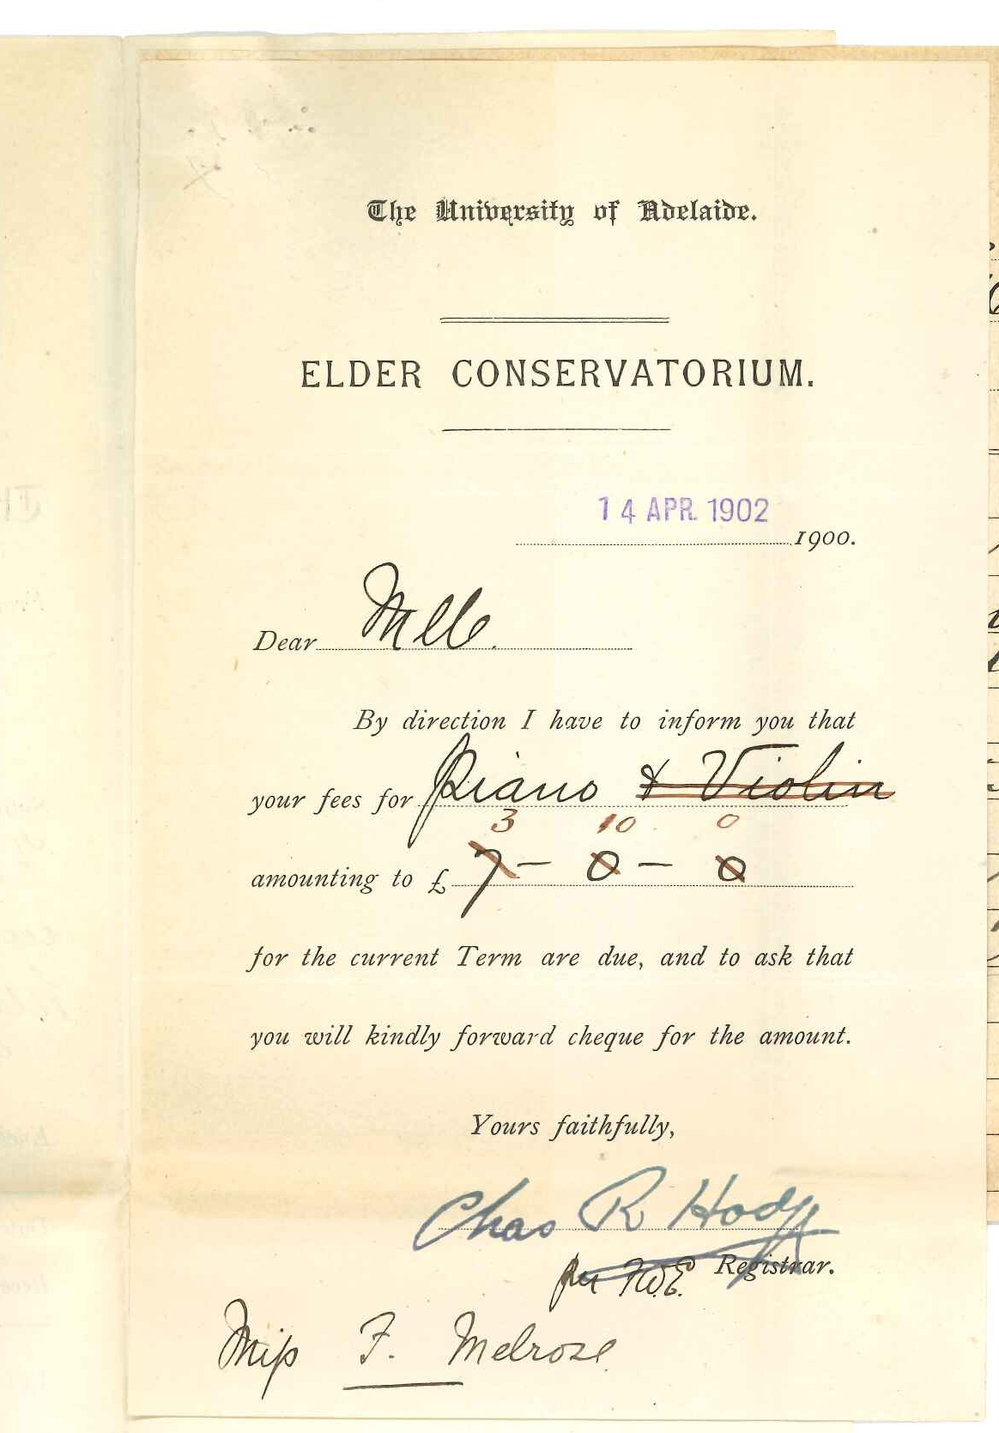 The University of Adelaide.
ELDER CONSERVATORIUM.
14 APR. 1902
1900.
Dear Mlle.
By direction I have to inform you that
your fees for Piano & Violin
3 10 0
amounting to £ 7 – 0 – 0
for the current Term are due, and to ask that
you will kindly forward cheque for the amount.
Yours faithfully,
Chas R Hodge
per F.W.E. Registrar.
Miss F. Melrose